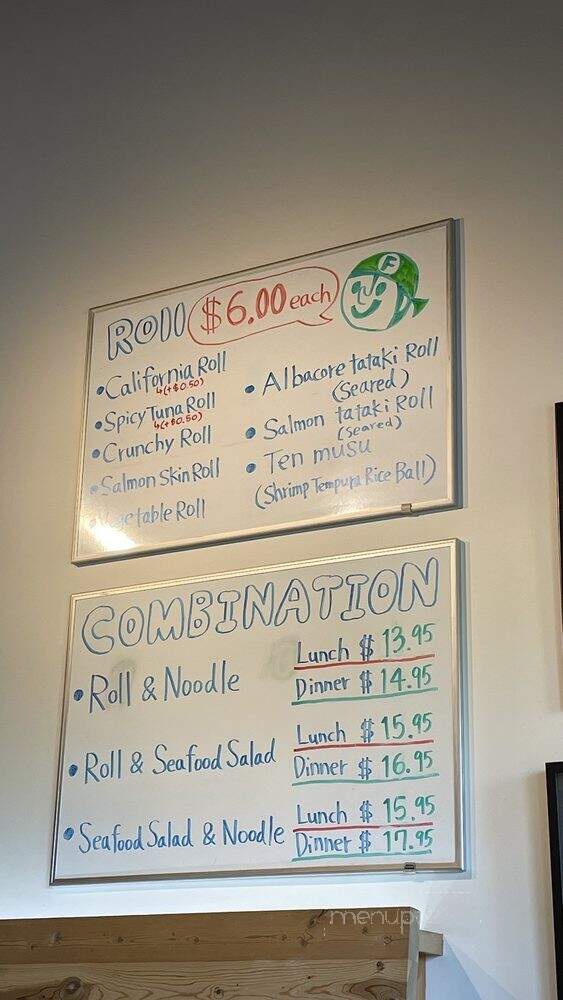 Roll $6.00 each
F
California Roll
↳(+$0.50)
Spicy Tuna Roll
↳(+$0.50)
Crunchy Roll
Salmon Skin Roll
Vegetable Roll
Albacore tataki Roll
(Seared)
Salmon tataki Roll
(seared)
Ten musu
(Shrimp Tempura Rice Ball)
COMBINATION
Roll & Noodle
Lunch $ 13.95
Dinner $ 14.95
Roll & Seafood Salad
Lunch $ 15.95
Dinner $ 16.95
Seafood Salad & Noodle
Lunch $ 15.95
Dinner $ 17.95